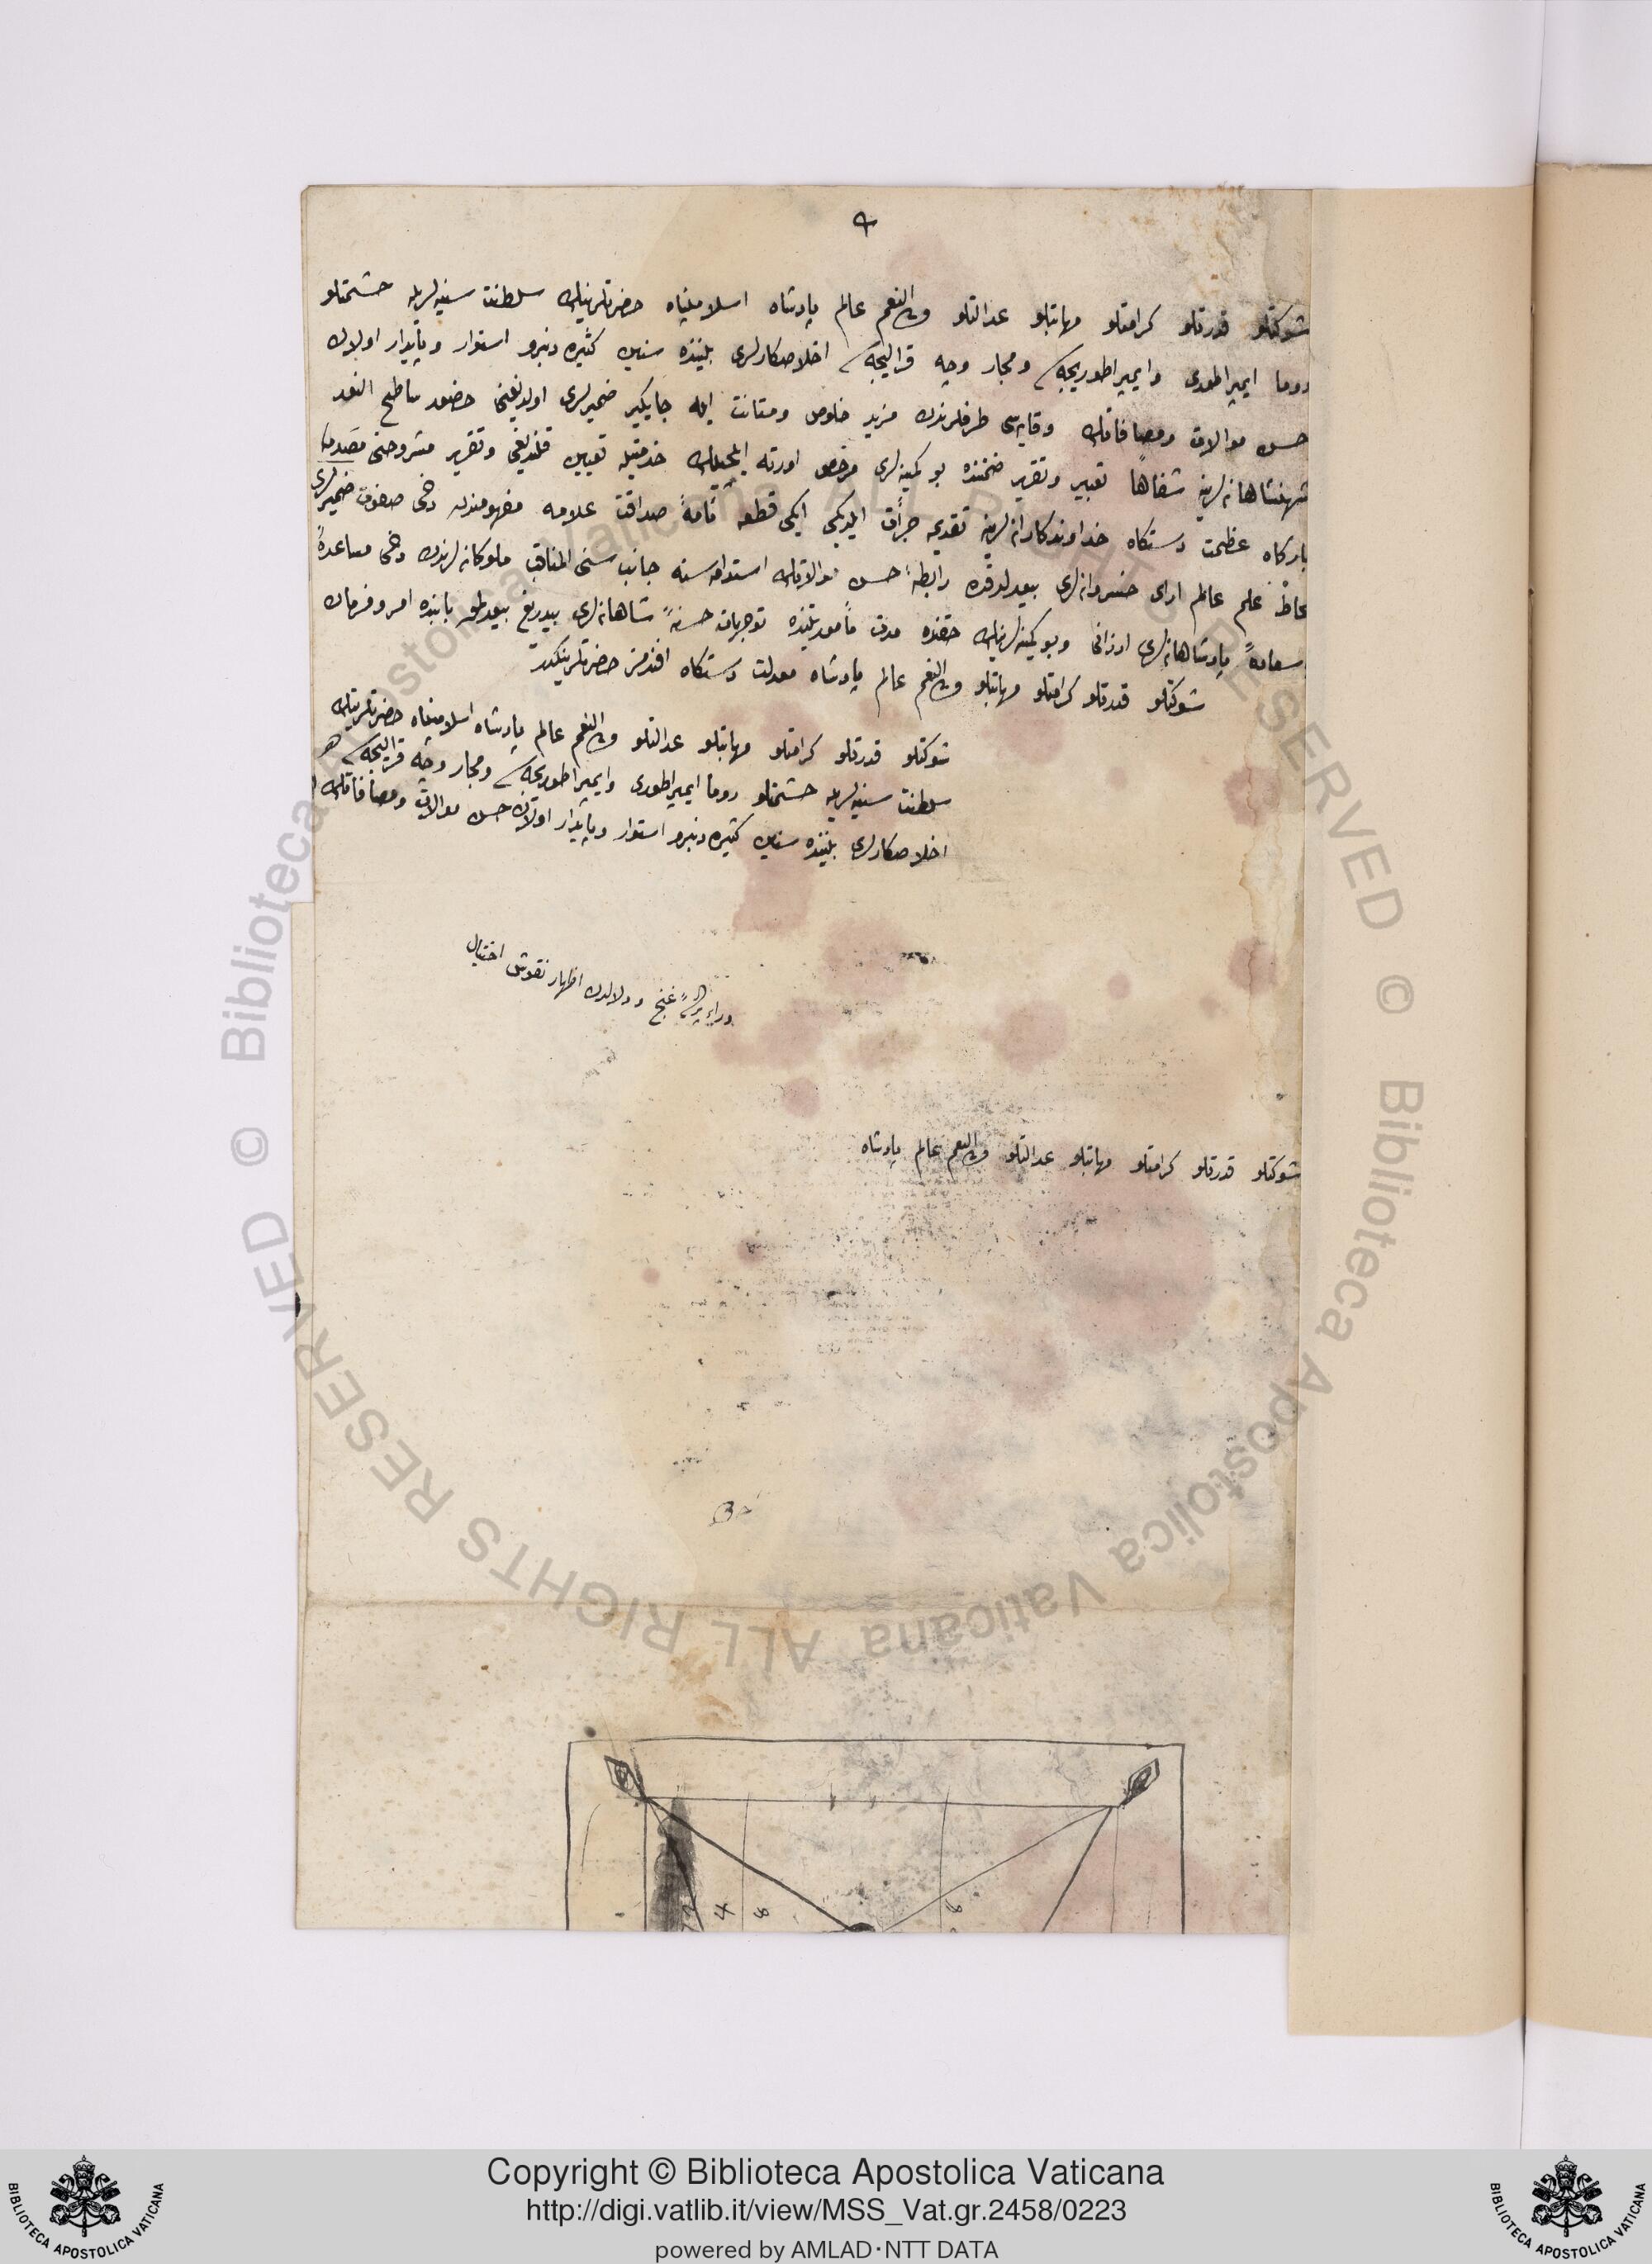 شوكتلو قدرتلو كرامتلو مهابتلو عدالتلو ولى النعم عالم پادشاه اسلامپناه حضرتلرينك سلطنت سنيه لريله حشمتلو
روما ايمپراطورى وايمپراطوريجه و مجار وچه قراليجه اخلاصكارلرى بيننده سنين كثيره دنبرو استوار وپايدار اولان
حسن موالات ومصافاتك وقايه سى طرفلرندن مزيد خلوص ومتانت ايله جايكير ضميرلرى اولديغنى حضور ساطع النور
شهنشاهانه لرينه شفاها تعبير وتقرير ضمننده بو كمينه لرى مرخص اورته ايلچيلك خدمتيله تعيين قلنديغى وتقرير مشروحنى مصدق
باركاه عظمت دستكاه خداوندكارانه لرينه تقديمه جرأت ايلديكم ايكى قطعه نامهٔ صداقت علامه مفهومندن دخى صفوت ضميرلرى
محاط علم عالم اراى خسروانه لرى بيورلدقده رابطهٔ حسن موالاتك استدامه سنه جانب سنى المناقب ملوكانه لرندن دخى مساعدهٔ
پادشاهانه لرى ارزانى وبو كمينه لرينك حقنده مدت مأموريتنده توجهات حسنهٔ شاهانه لرى بيدريغ بيورلمق بابنده امر وفرمان
شوكتلو قدرتلو كرامتلو مهابتلو ولى النعم عالم پادشاه معدلت دستكاه افندمز حضرتلرينكدر
شوكتلو قدرتلو كرامتلو مهابتلو عدالتلو ولى النعم عالم پادشاه اسلامپناه حضرتلرينك
سلطنت سنيه لريله حشمتلو روما ايمپراطورى وايمپراطوريجه و مجار وچه قراليجه
اخلاصكارلرى بيننده سنين كثيره دنبرو استوار وپايدار اولان حسن موالات ومصافاتك
غنج ودلالدن اظهار نقوش
شوكتلو قدرتلو كرامتلو مهابتلو عدالتلو ولى النعم عالم پادشاه
4 8
Copyright © Biblioteca Apostolica Vaticana
http://digi.vatlib.it/view/MSS_Vat.gr.2458/0223
powered by AMLAD·NTT DATA
BIBLIOTECA APOSTOLICA VATICANA
BIBLIOTECA APOSTOLICA VATICANA
© Biblioteca Apostolica Vaticana ALL RIGHTS RESERVED © Biblioteca Apostolica Vaticana ALL RIGHTS RESERVED